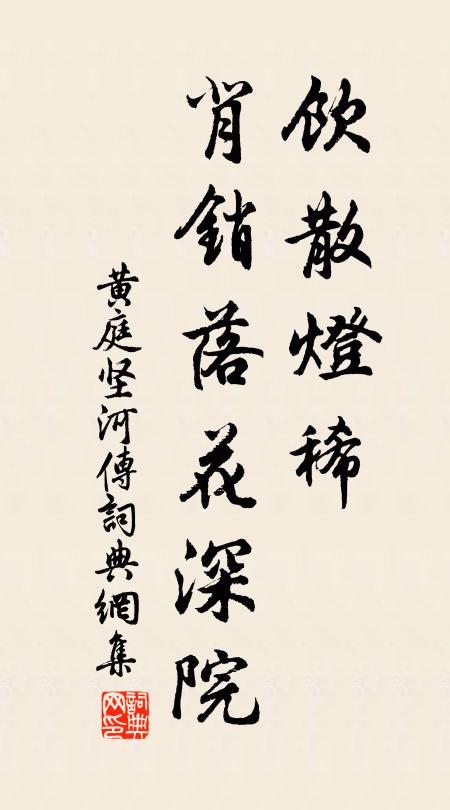 飲散燈稀
背銷落花深院
黄庭坚河傳詞典網集
詞典网印